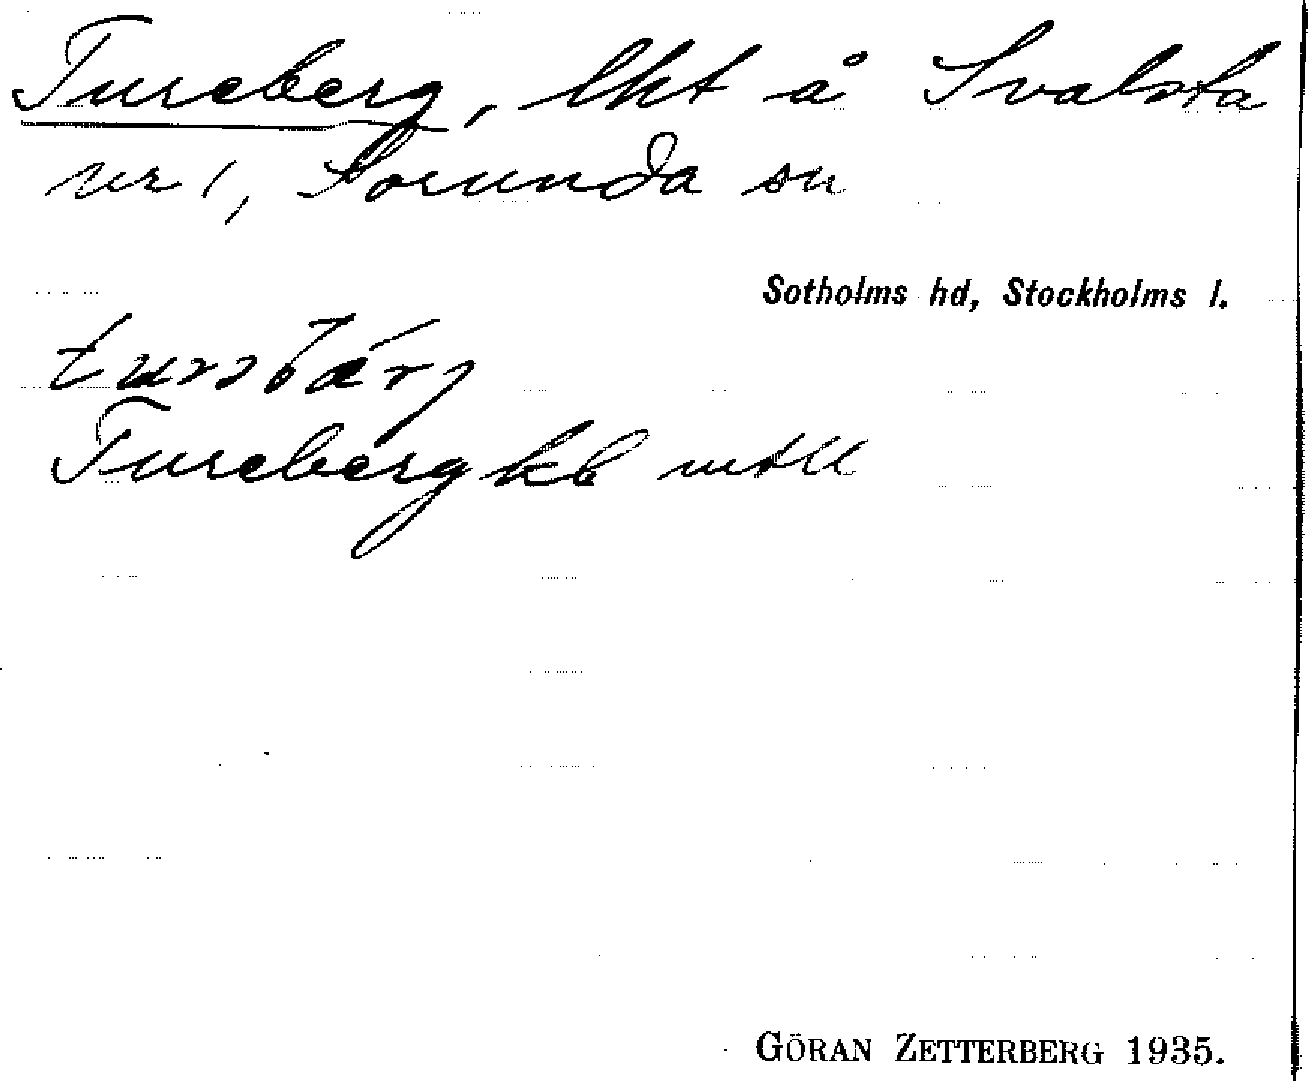 Tureberg, lht å Svalsta
nr 1, Sorunda sn
Sotholms hd, Stockholms l.
Tureberg kb mtll
GÖRAN ZETTERBERG 1935.